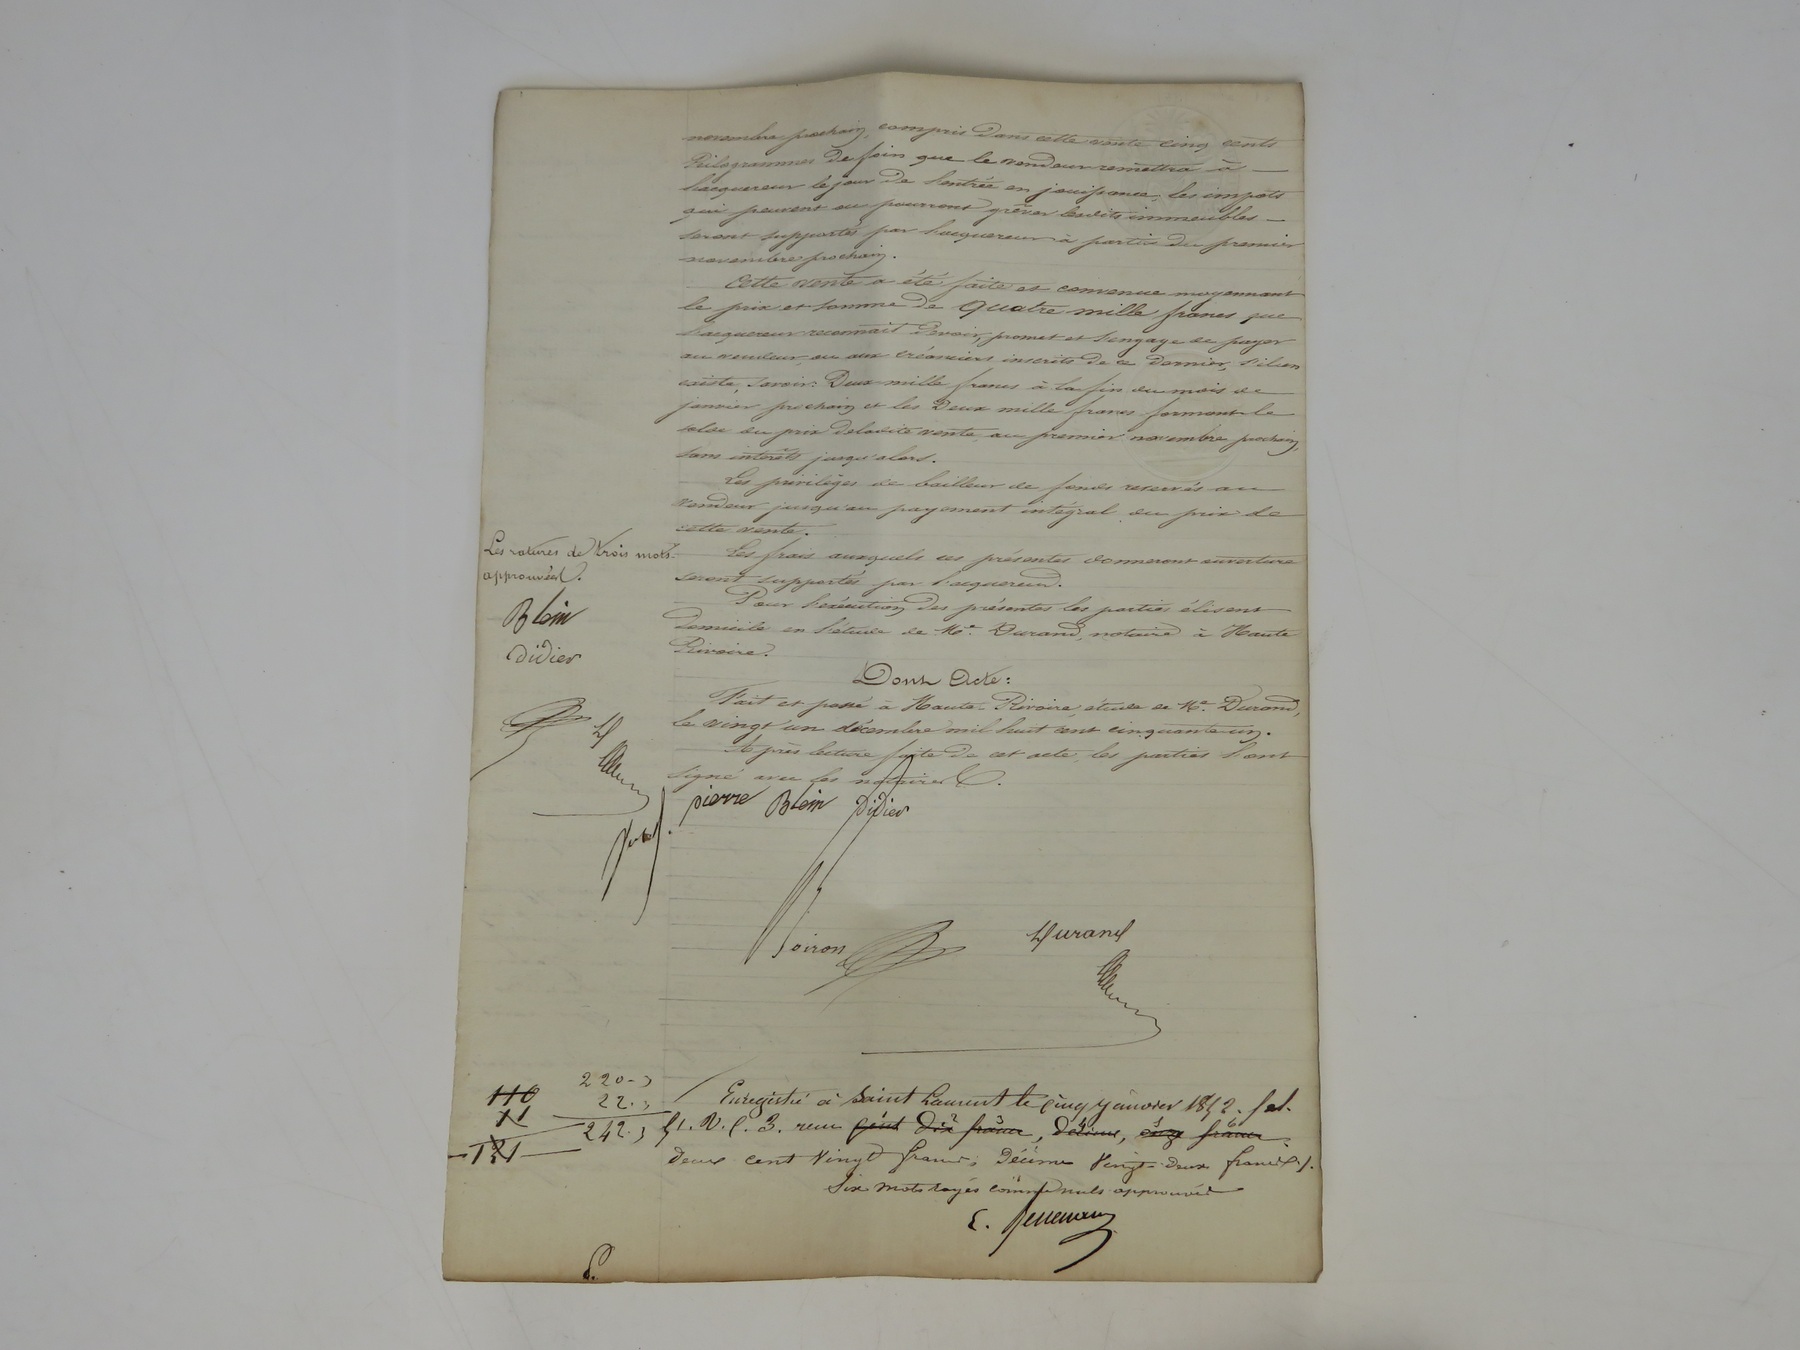 novembre prochain, compris dans cette vente cinq cents
Kilogrammes de foin que le vendeur remettra à
l'acquereur le jour de l'entrée en jouissance, les impots
qui peuvent ou pourront grêver lesdits immeubles
seront supportés par l'acquereur à partir du premier
novembre prochain.
Cette vente a été faite et convenue moyennant
le prix et somme de Quatre mille francs que
l'acquereur reconnait devoir, promet et s'engage de payer
au vendeur, ou aux créanciers inscrits de ce dernier, s'il en
existe, savoir: Deux mille francs à la fin du mois de
janvier prochain et les Deux mille francs formant le
solde du prix deladite vente au premier novembre prochain,
sans intérêts jusqu'alors.
Les privilèges de bailleur de fonds reservés au
vendeur jusqu'au payement intégral du prix de
cette vente.
Les frais auxquels ces présentes donneront ouverture
seront supportés par l'acquereur.
Pour l'exécution des présentes les parties élisent
domicile en l'étude de Me. Durand, notaire à Haute
Rivoire.
Dont Acte:
Fait et passé à Haute-Rivoire, étude de Me. Durand,
le vingt un décembre mil huit cent cinquante un.
Après lecture faite de cet acte, les parties l'ont
signé avec les notaires.
Les ratures de trois mots
approuvées.
Blein
Didier
D
pierre Blein Didier
oiron
Durand
220-
22.
242.
110
11
121
Enregistré à Saint Laurent le cinq janvier 1852. fol.
51. V. C. 3. reçu cent dix francs, décime, onze francs
deux cent vingt francs; Décime vingt-deux francs
Six mots rayés comme nuls approuvés
E.